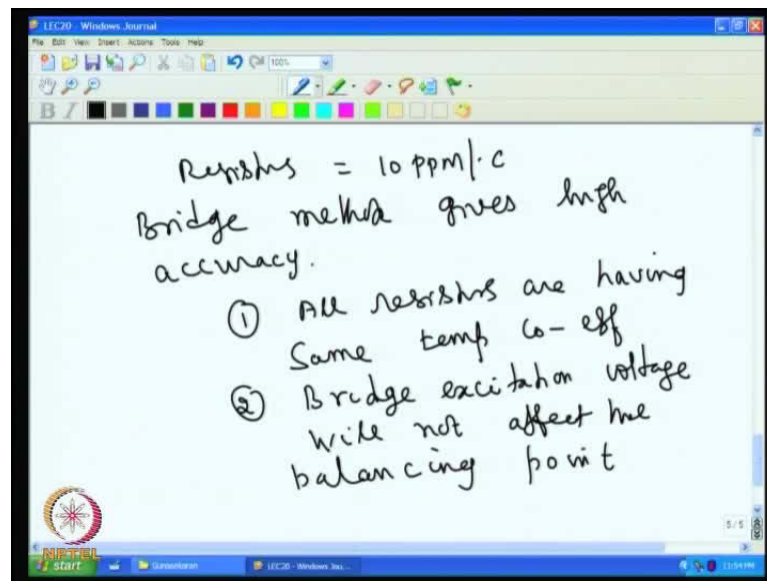 LEC20 - Windows Journal
File Edit View Insert Actions Tools Help
100%
B I
Resistrs = 10 ppm/°C
Bridge method gives high
accuracy.
① All resistrs are having
Same temp co-eff
② Bridge excitation voltage
will not affect the
balancing point
5/5
NPTEL
start Gunasekaran LEC20 - Windows Jou... 11:54 PM